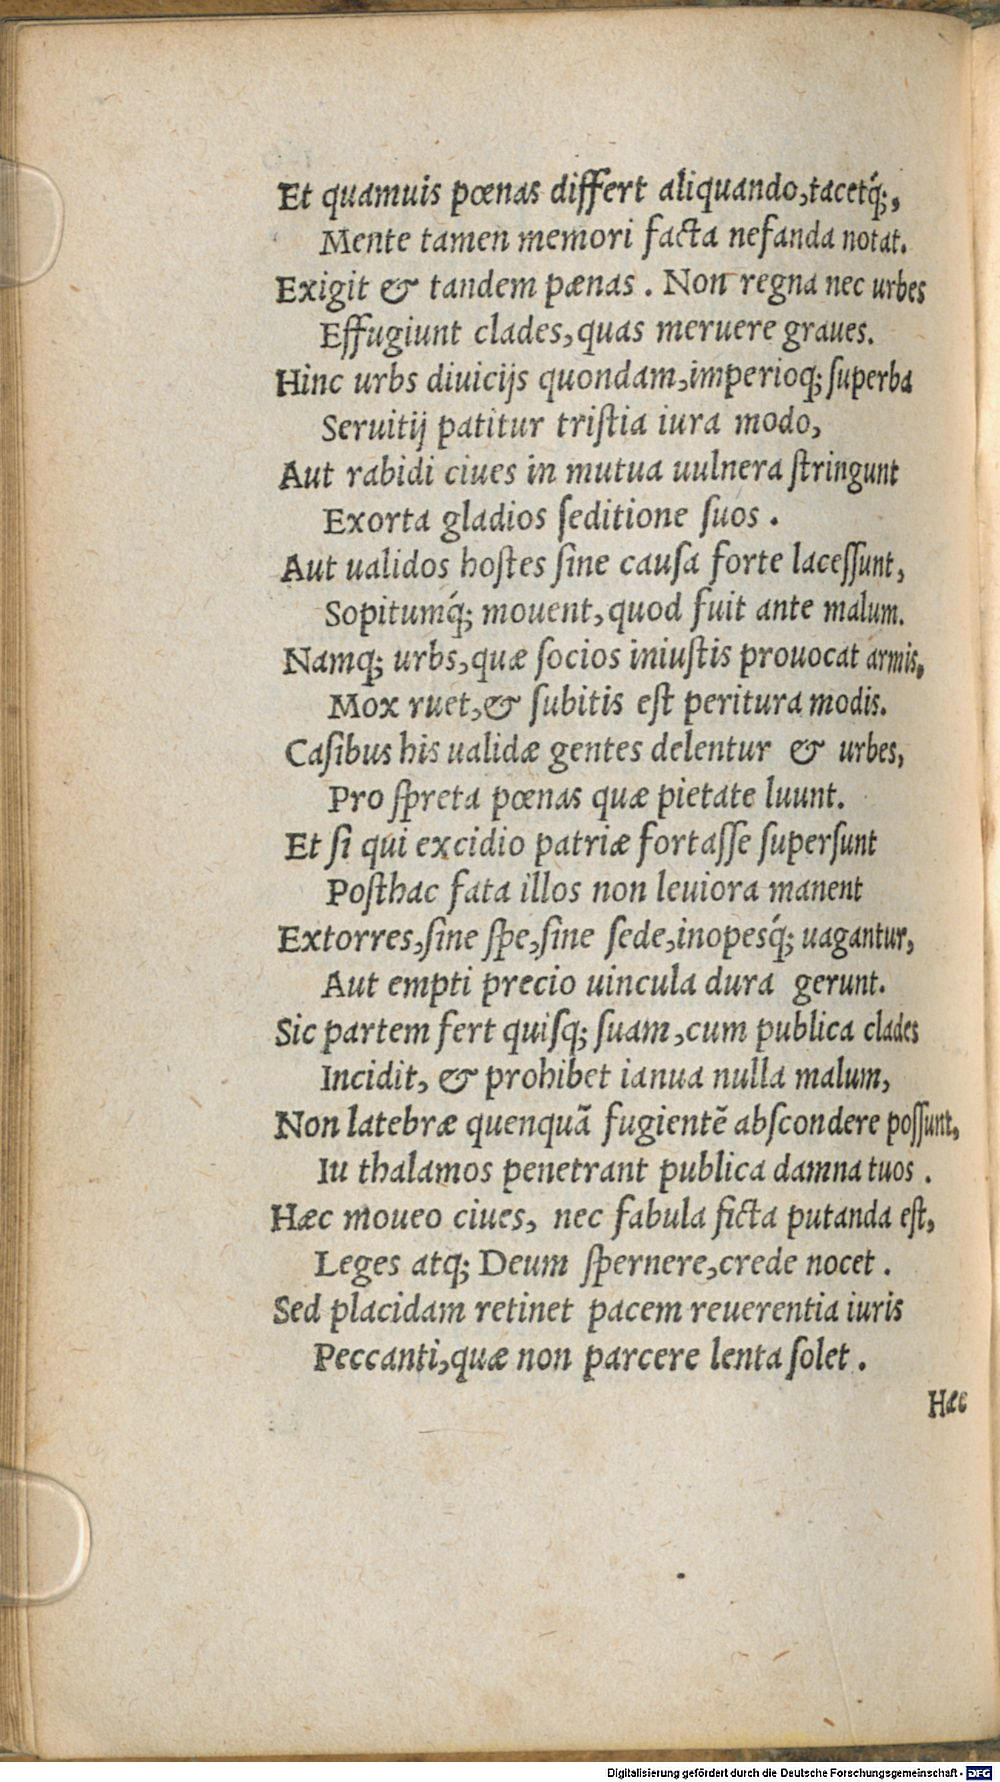 Et quamuis pœnas differt aliquando,tacetq́;,
Mente tamen memori facta nefanda notat.
Exigit & tandem pænas . Non regna nec urbes
Effugiunt clades,quas meruere graues.
Hinc urbs diuicijs quondam,imperioq; superba
Seruitij patitur tristia iura modo,
Aut rabidi ciues in mutua uulnera stringunt
Exorta gladios seditione suos .
Aut ualidos hostes sine causa forte lacessunt,
Sopitumq́; mouent,quod fuit ante malum.
Namq; urbs,quæ socios iniustis prouocat armis,
Mox ruet,& subitis est peritura modis.
Casibus his ualidæ gentes delentur & urbes,
Pro spreta pœnas quæ pietate luunt.
Et si qui excidio patriæ fortasse supersunt
Posthac fata illos non leuiora manent
Extorres,sine spe,sine sede,inopesq́; uagantur,
Aut empti precio uincula dura gerunt.
Sic partem fert quisq; suam,cum publica clades
Incidit, & prohibet ianua nulla malum,
Non latebræ quenquã fugientẽ abscondere possunt,
Iu thalamos penetrant publica damna tuos .
Hæc moueo ciues, nec fabula ficta putanda est,
Leges atq; Deum spernere,crede nocet .
Sed placidam retinet pacem reuerentia iuris
Peccanti,quæ non parcere lenta solet .
Hæc
Digitalisierung gefördert durch die Deutsche Forschungsgemeinschaft - DFG